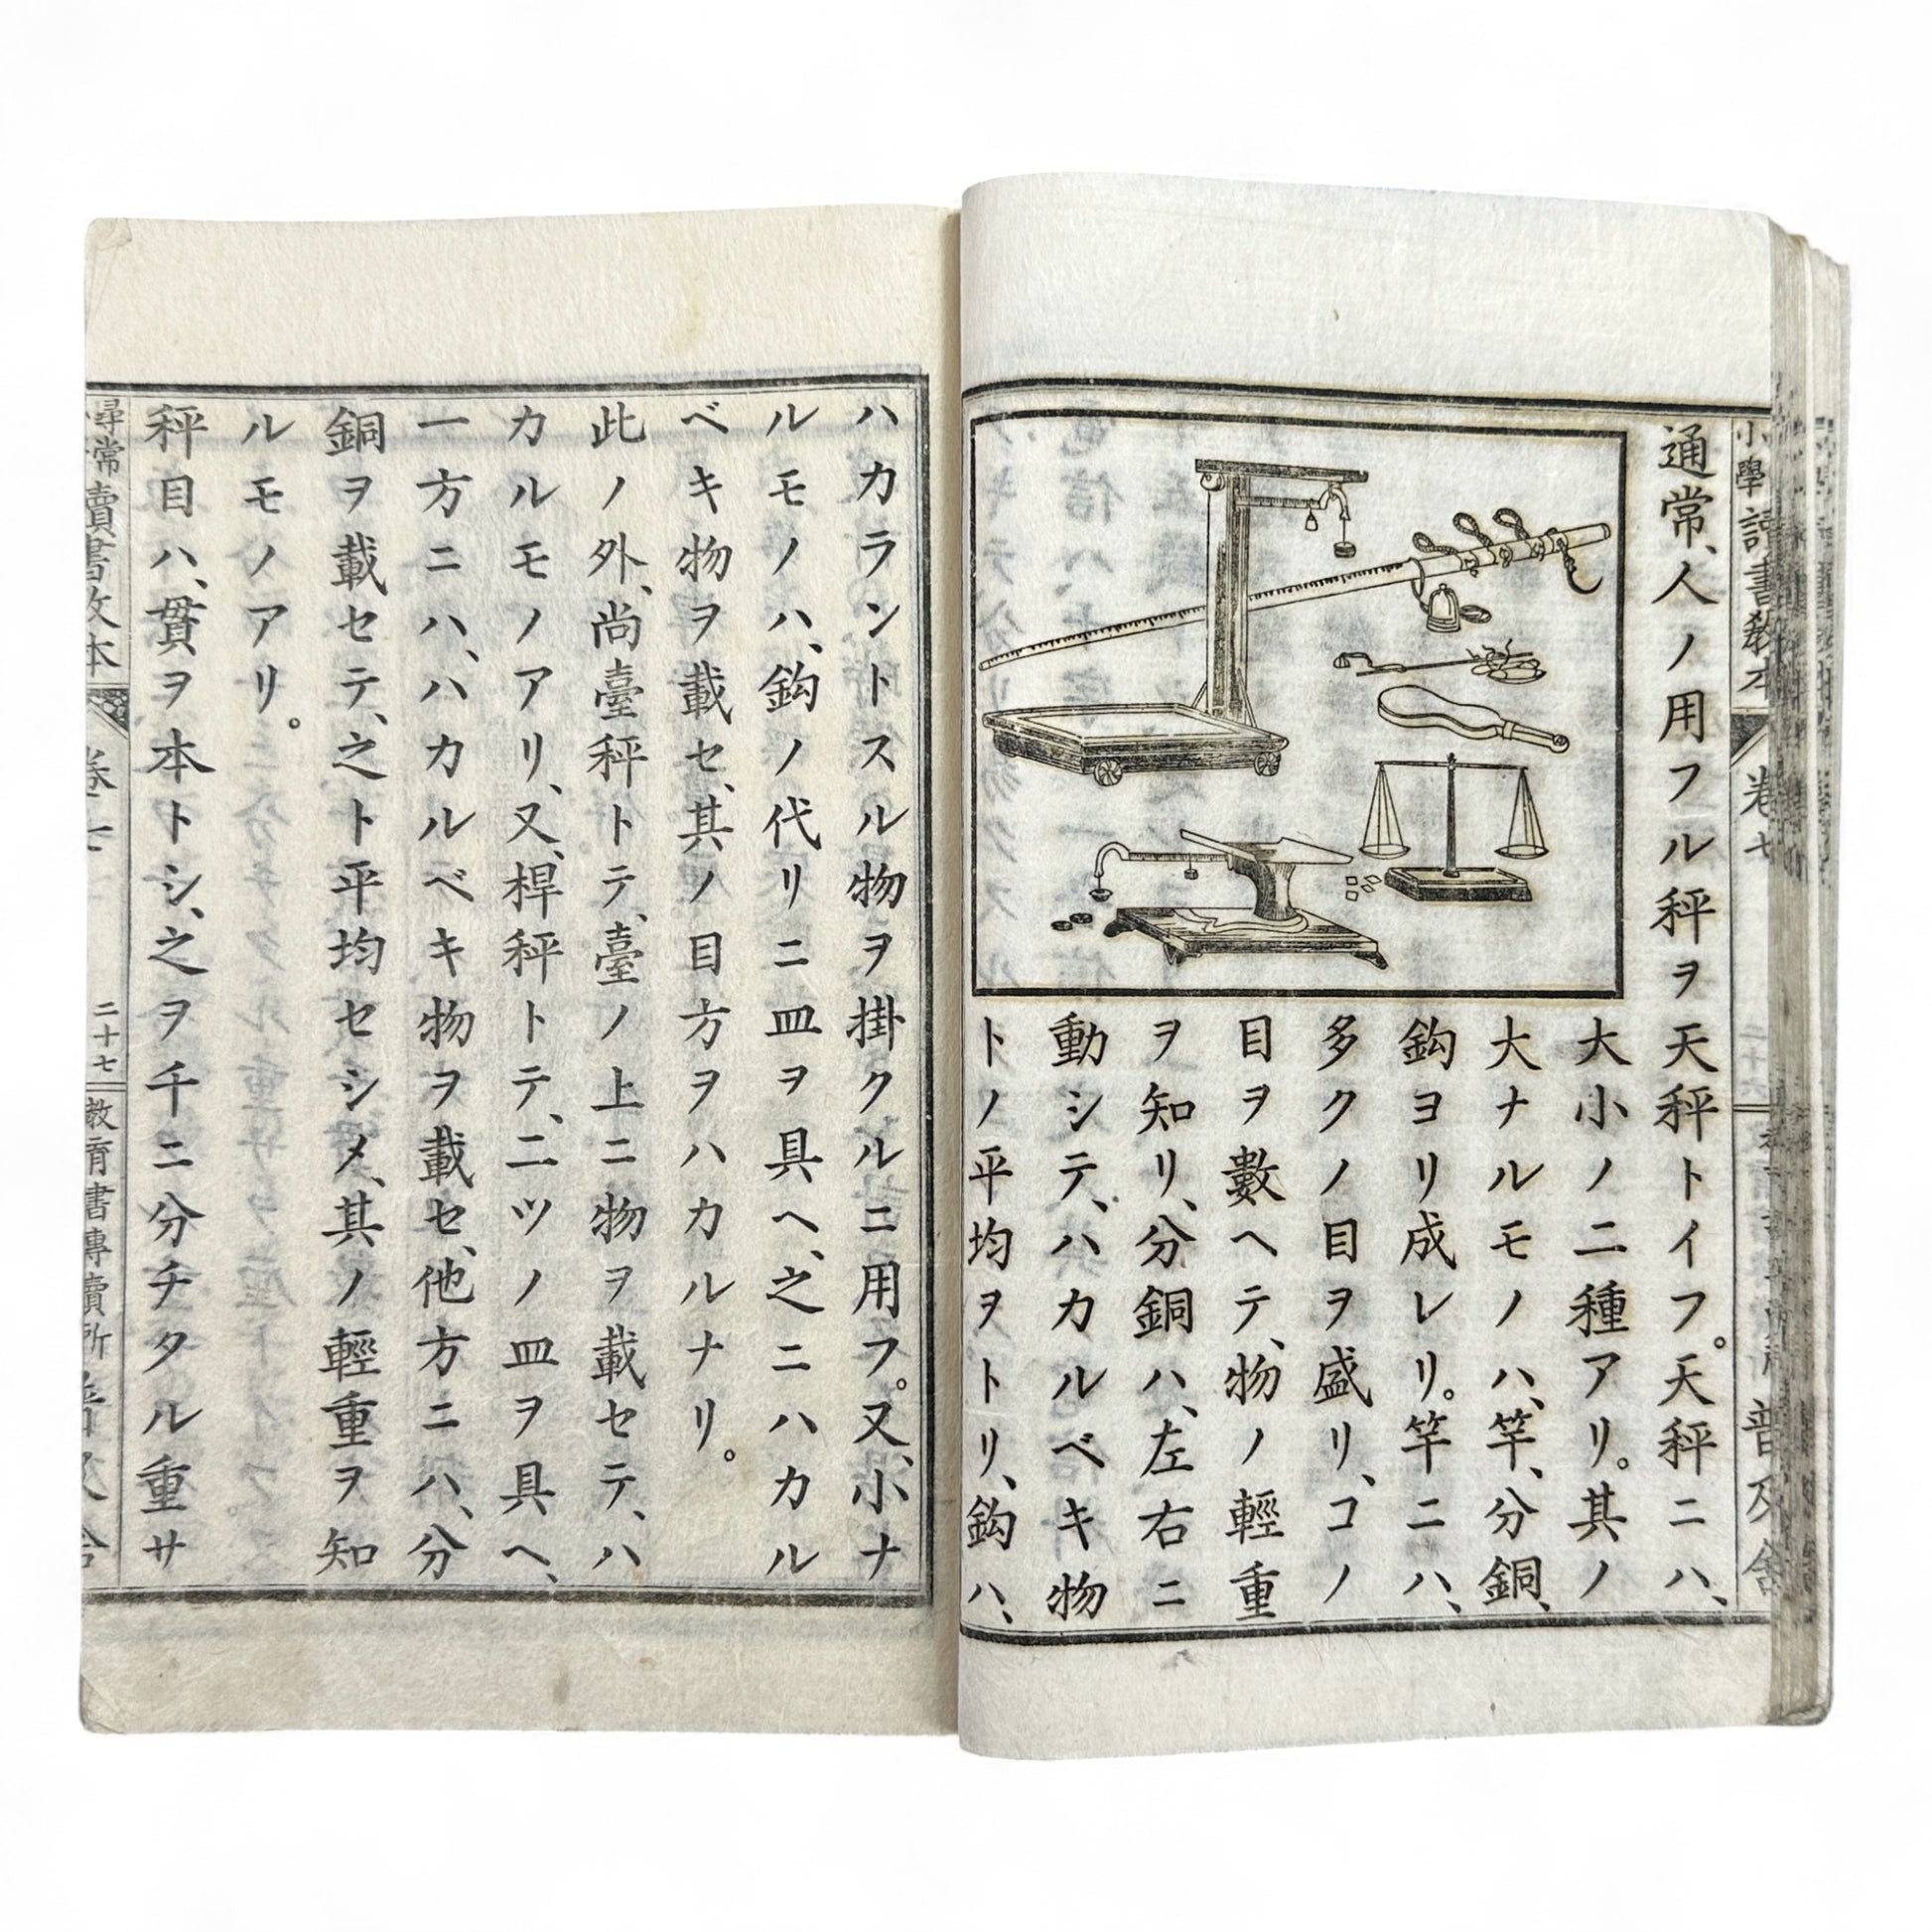 小學讀書教本
卷七
普及舍
通常、人ノ用フル秤ヲ天秤トイフ。天秤ニハ、
大小ノ二種アリ。其ノ
大ナルモノハ、竿、分銅、
鈎ヨリ成レリ。竿ニハ、
多クノ目ヲ盛リ、コノ
目ヲ數ヘテ、物ノ輕重
ヲ知リ、分銅ハ、左右ニ
動シテ、ハカルベキ物
トノ平均ヲトリ、鈎ハ、
ハカラントスル物ヲ掛クルニ用フ。又、小ナ
ルモノハ、鈎ノ代リニ皿ヲ具ヘ、之ニハカル
ベキ物ヲ載セ、其ノ目方ヲハカルナリ。
此ノ外、尚臺秤トテ、臺ノ上ニ物ヲ載セテ、ハ
カルモノアリ、又、桿秤トテ、二ツノ皿ヲ具ヘ、
一方ニハ、ハカルベキ物ヲ載セ、他方ニハ、分
銅ヲ載セテ、之ト平均セシメ、其ノ輕重ヲ知
ルモノアリ。
秤目ハ、貫ヲ本トシ、之ヲ千ニ分チタル重サ
尋常讀書教本
卷七
二十七
教育書專賣所
普及舍